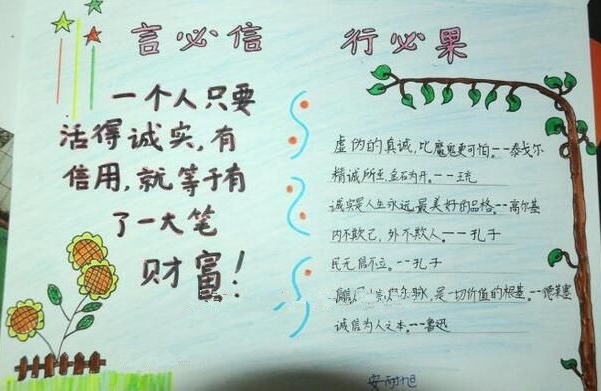 言必信 行必果
一个人只要
活得诚实,有
信用,就等于有
了一大笔
财富!
虚伪的真诚,比魔鬼更可怕。--泰戈尔
精诚所至,金石为开。--王充
诚实是人生永远最美好的品格。--高尔基
内不欺己,外不欺人。--孔子
民无信不立。--孔子
是一切价值的根基。--德莱塞
诚信为人之本。--鲁迅